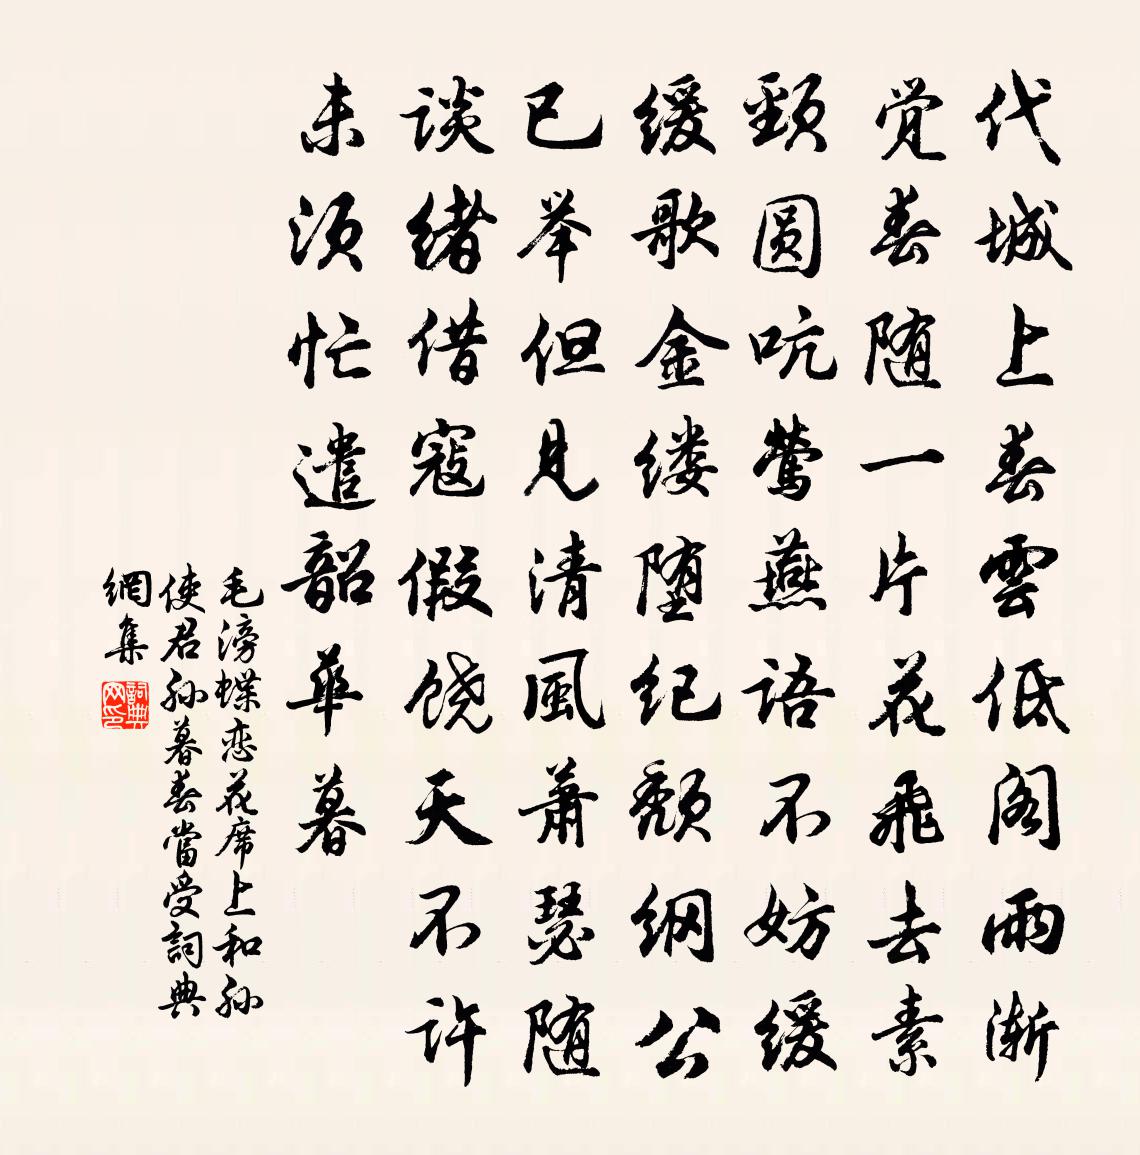 代城上春雲低阁雨渐
觉春随一片花飞去素
颈圆吭莺燕语不妨缓
缓歌金缕堕纪颓纲公
已举但见清風萧瑟随
谈绪借寇假饶天不许
未须忙遣韶華暮
毛滂蝶恋花席上和孙
使君孙暮春當受詞典
網集
詞典网印